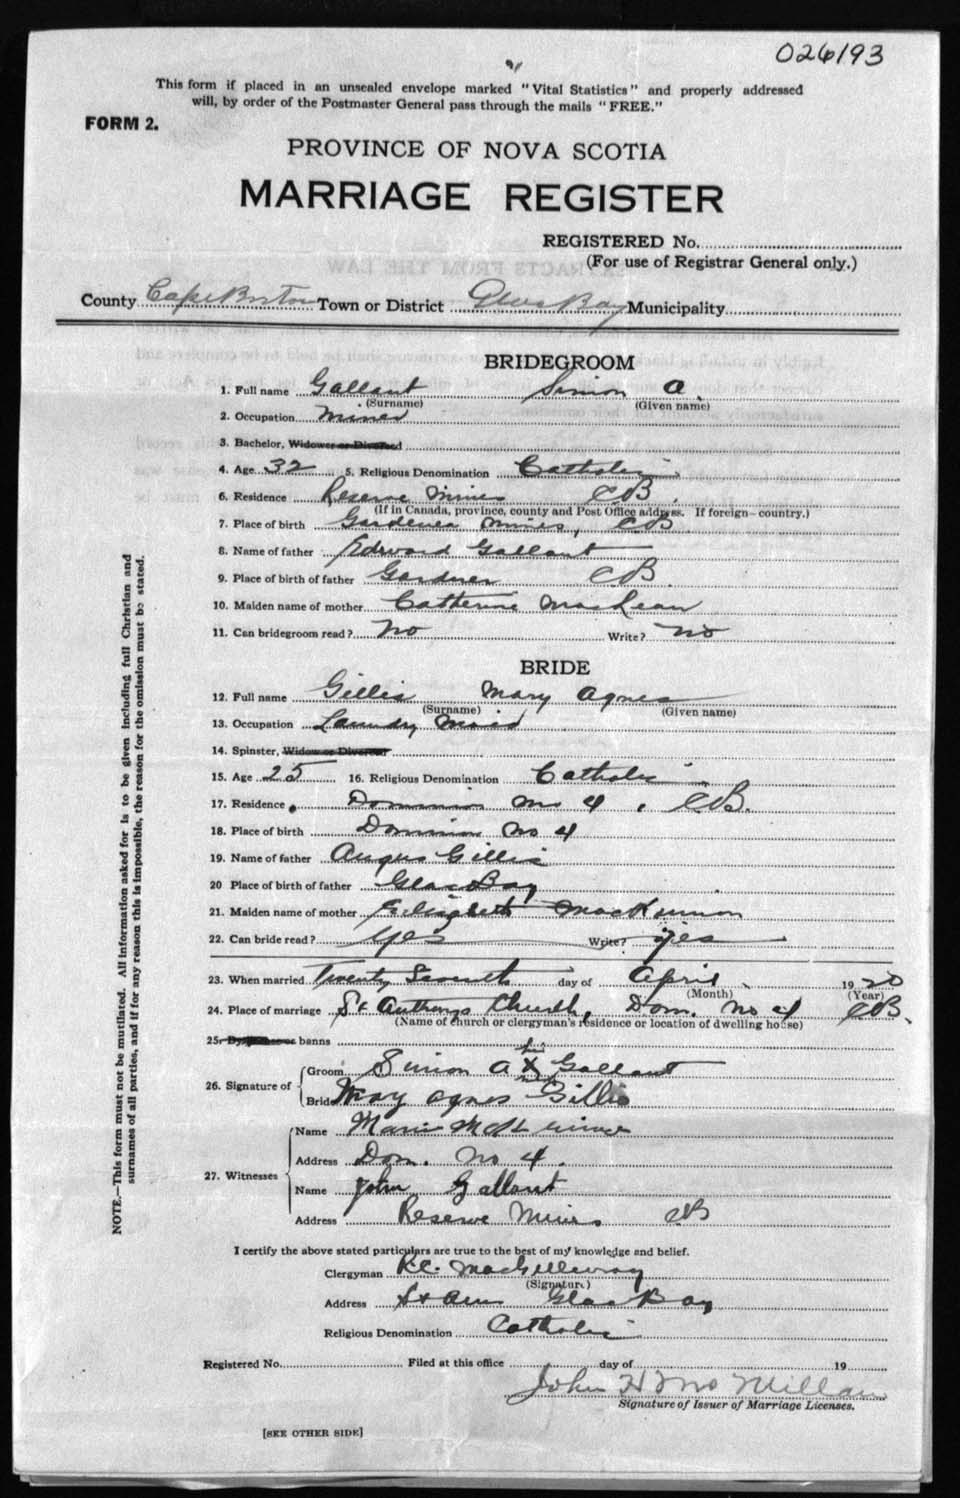 026193
This form if placed in an unsealed envelope marked "Vital Statistics" and properly addressed
will, by order of the Postmaster General pass through the mails "FREE."
FORM 2.
PROVINCE OF NOVA SCOTIA
MARRIAGE REGISTER
REGISTERED No.
(For use of Registrar General only.)
County Cape Breton Town or District Glace Bay Municipality
BRIDEGROOM
1. Full name Gallant Simon A.
(Surname) (Given name)
2. Occupation Miner
3. Bachelor, Widower or Divorced
4. Age 32 5. Religious Denomination Catholic
6. Residence Reserve Mines CB.
(If in Canada, province, county and Post Office address. If foreign—country.)
7. Place of birth Gardener Mines, CB
8. Name of father Edward Gallant
9. Place of birth of father Gardner CB.
10. Maiden name of mother Catherine MacLean
11. Can bridegroom read? no Write? no
BRIDE
12. Full name Gillis Mary Agnes
(Surname) (Given name)
13. Occupation Laundry Maid
14. Spinster, Widow or Divorced
15. Age 25 16. Religious Denomination Catholic
17. Residence Dominion No 4, CB.
18. Place of birth Dominion No 4
19. Name of father Angus Gillis
20 Place of birth of father Glace Bay
21. Maiden name of mother Elizabeth MacKinnon
22. Can bride read? yes Write? yes
23. When married Twenty Seventh day of April 1920
(Month) (Year)
24. Place of marriage St Anthonys Church, Dom. No 4 CB.
(Name of church or clergyman's residence or location of dwelling house)
25. banns
his
26. Signature of Groom Simon A X Gallant
Bride May Agnes Gillis
27. Witnesses Name
Address Dom. No 4.
Name John Gallant
Address Reserve Mines CB
I certify the above stated particulars are true to the best of my knowledge and belief.
Clergyman MacGillivray
(Signature)
Address St Ann Glace Bay
Religious Denomination Catholic
Registered No. Filed at this office day of 19
John H McMillan
Signature of Issuer of Marriage Licenses.
[SEE OTHER SIDE]
NOTE.—This form must not be mutilated. All information asked for is to be given including full Christian and
surnames of all parties, and if for any reason this is impossible, the reason for the omission must be stated.